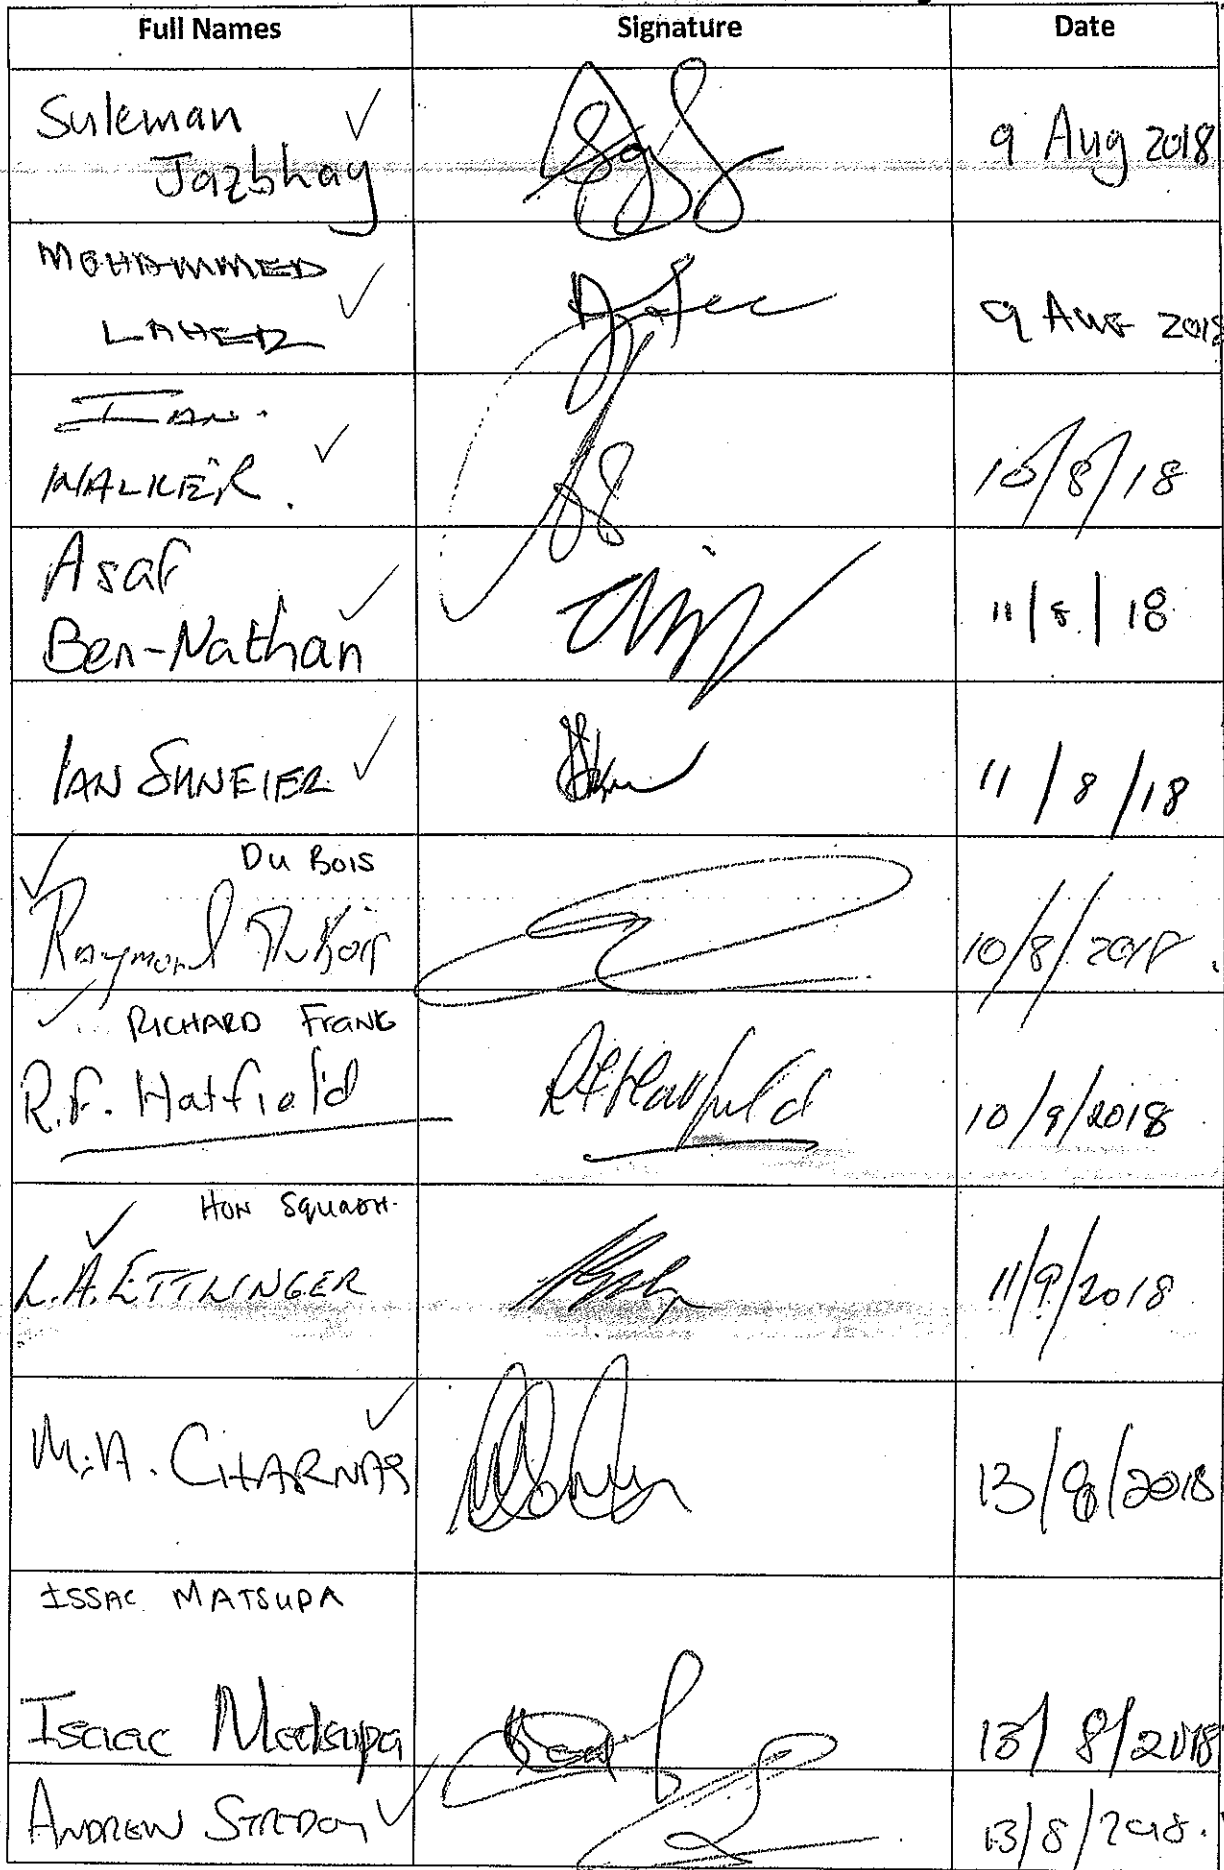 Full Names Signature Date
Suleman
Jazbhay 9 Aug 2018
MOHAMMED
LAHER 9 AUG 2018
IAN.
WALKER. 10/8/18
Asaf
Ben-Nathan 11/8/18
IAN SHNEIER 11/8/18
DU BOIS
Raymond DuBois 10/8/2018
RICHARD FRANK
R.F. Hatfield RFHatfield 10/9/2018
HON SQUASH.
L.A. ETTLINGER 11/9/2018
M.A. CHARNAS 13/8/2018
ISSAC MATSUPA
Isaac Matsupa 13/8/2018
ANDREW 13/8/2018.